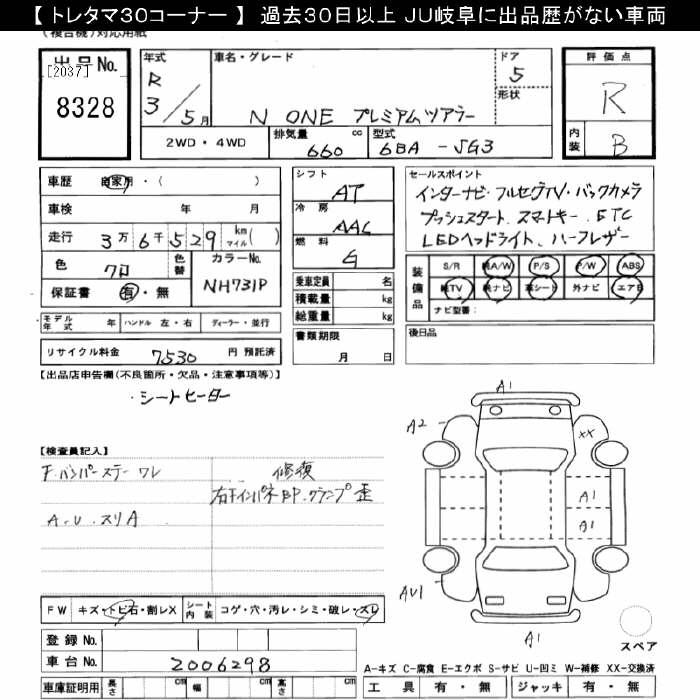 【トレタマ30コーナー】 過去30日以上 JU岐阜に出品歴がない車両
(複合機)対応用紙
出品No.
[2037]
8328
年式
R
3/5月
車名・グレード
N ONE プレミアムツアラー
ドア
5
形状
評価点
R
内装
B
2WD・4WD
排気量 cc
660
型式
6BA - JG3
車歴 自家用・( )
車検 年 月
走行 3万6千529 km マイル( )
色 クロ
色替
カラーNo.
NH731P
保証書 有・無
シフト
AT
冷房
AAC
燃料
G
セールスポイント
インターナビ・フルセグTV・バックカメラ
プッシュスタート、スマートキー、ETC
LEDヘッドライト、ハーフレザー
装備品
S/R 純A/W P/S P/W ABS
純TV 純ナビ 革シート 外ナビ エアB
ナビ型番:
乗車定員 名
積載量 kg
総重量 kg
モデル年式 年 ハンドル 左・右 ディーラー・並行
書類期限
月 日
後日品
リサイクル料金 7,530 円 預託済
【出品店申告欄(不良箇所・欠品・注意事項等)】
・シートヒーター
【検査員記入】
F.バンパーステー ワレ
修復
右Fインパネ BP.クランプ 歪
A.U.スリA
A1
A2
XX
A1
A1
AU1
A1
スペア
FW キズ・トビ石・割レX
シート内装 コゲ・穴・汚レ・シミ・破レ・スレ
登録No.
車台No. 2006298
車庫証明用 長さ cm 幅 cm 高さ cm
A-キズ C-腐食 E-エクボ S-サビ U-凹ミ W-補修 XX-交換済
工具 有・無 ジャッキ 有・無